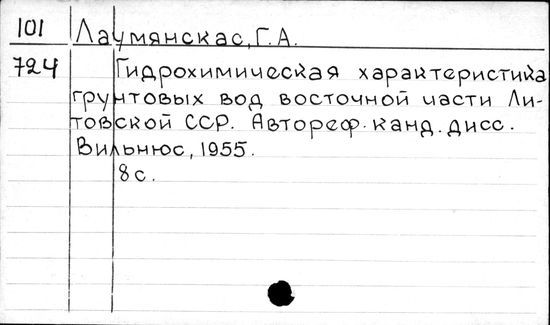 101 Лаумянскас, Г.А.
724 Гидрохимическая характеристика
грунтовых вод восточной части Ли-
товской ССР. Автореф. канд. дисс.
Вильнюс, 1955.
8 с.